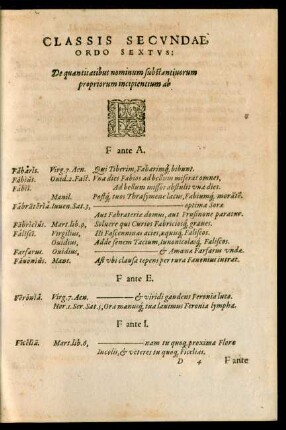 CLASSIS SECVNDAE,
ORDO SEXTVS:
De quantitatibus nominum substantiuorum
propriorum incipientium ab
F
F ante A.
Făbăris. Virg.7.Aen. Qui Tiberim, Fabarimq́; bibunt.
Făbius. Ouid.2.Fast. Vna dies Fabios ad bellum miserat omnes,
Făbij. Ad bellum missos abstulit vna dies.
Manil. Postq́; tuos Thrasymene lacus, Fabiumq́;
Făbrātĕria. Iuuen.Sat.3. optima Sorae
Aut Fabrateriae domus, aut Frusinone paratur.
Făbricius. Mart.lib.9. Soluere qui Curios Fabriciosq́; graues.
Falisci. Virgilius, Hi Fescenninas acies, aequosq́; Faliscos.
Ouidius, Adde senem Tatium, Iunonicolasq́; Faliscos.
Farfarus. Ouidius, & Amoena Farfarus vmbra.
Făuonius. Mant. Ast vbi clausa tepens per rura Fauonius intrat.
F ante E.
Fĕrōnia. Virg.7.Aen. & viridi gaudens Feronia luco.
Hor.1.Ser.Sat.5. Ora manusq́; tua lauimus Feronia lympha.
F ante I.
Ficeliae. Mart.lib.6. nam tu quoq́; proxima Florae
Incolis, & veteres tu quoq́; Ficelias.
D 4 F ante